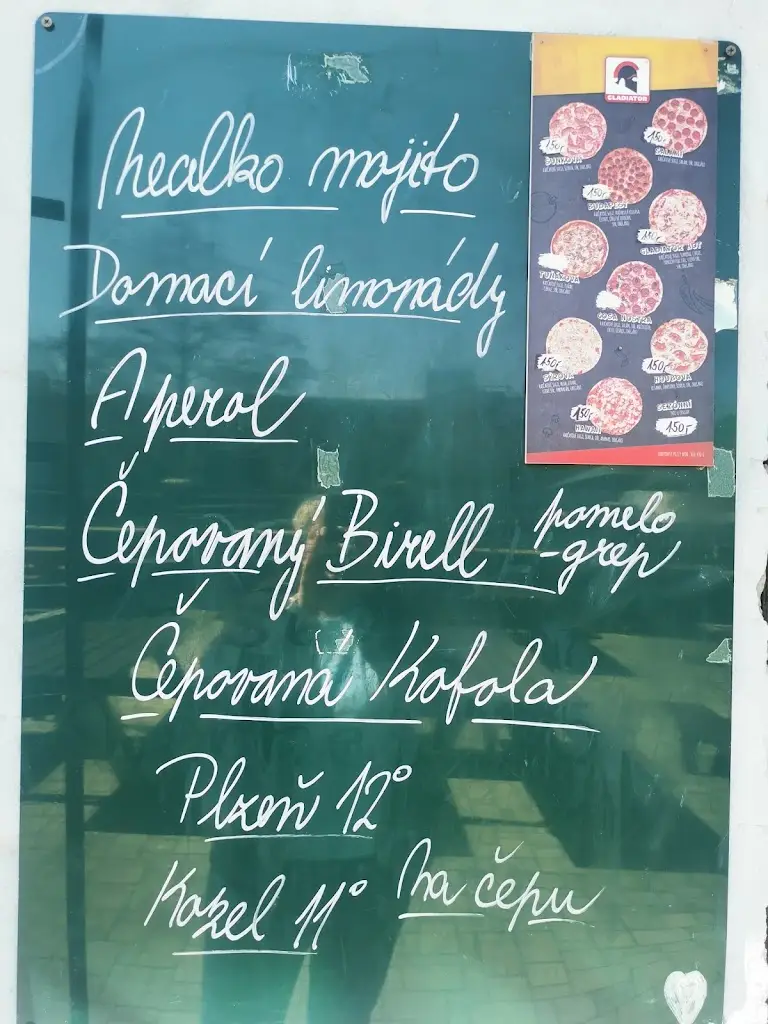 Nealko mojito
Domací limonády
Aperol
Čepovaný Birell pomelo
-grep
Čepovana Kofola
Plzeň 12°
Kozel 11° Na čepu
GLADIATOR
150,-
ŠUNKOVÁ
150,-
SALÁMOVÁ
150,-
BUDAPEST
150,-
GLADIATOR HOT
TUŇÁKOVÁ
COSA NOSTRA
150,-
SÝROVÁ
150,-
HOUBOVÁ
150,-
HAWAI
SEZÓNNÍ
150,-